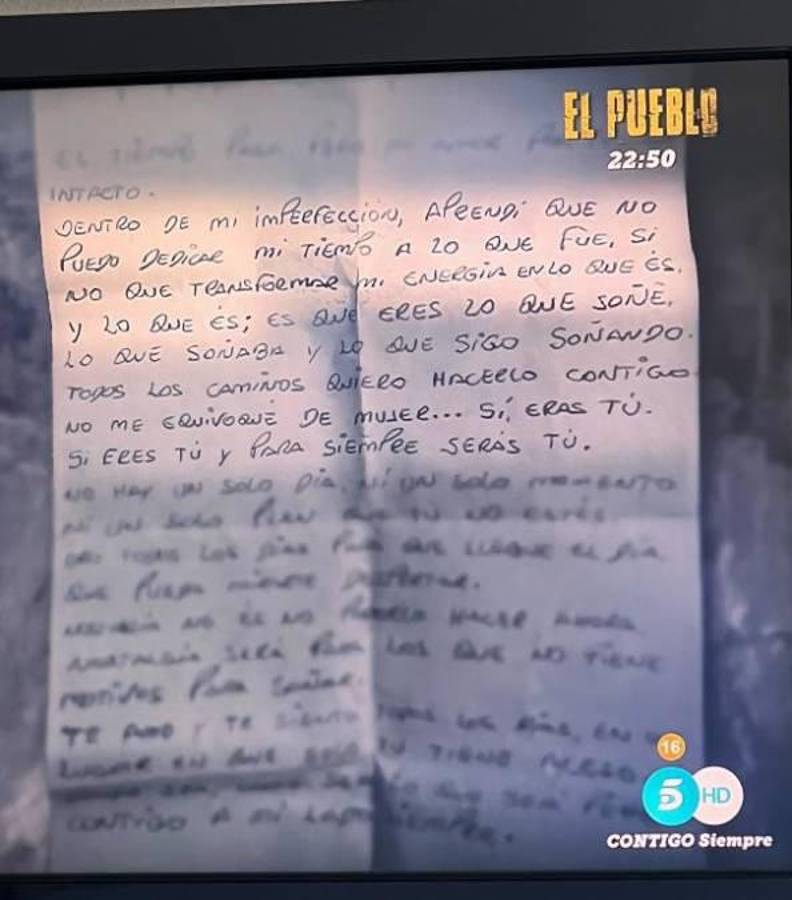 EL PUEBLO
22:50
EL TIEMPO PARA
INTACTO.
DENTRO DE MI IMPERFECCIÓN, APRENDÍ QUE NO
PUEDO DEDICAR MI TIEMPO A LO QUE FUE, SI
NO QUE TRANSFORMAR MI ENERGÍA EN LO QUE ÉS.
Y LO QUE ÉS; ES QUE ERES LO QUE SOÑÉ.
LO QUE SOÑABA Y LO QUE SIGO SOÑANDO.
TODOS LOS CAMINOS QUIERO HACERLO CONTIGO
NO ME EQUIVOQUÉ DE MUJER... SÍ, ERAS TÚ.
SI ERES TÚ Y PARA SIEMPRE SERÁS TÚ.
NO HAY UN SOLO DÍA, NI UN SOLO MOMENTO
NI UN SOLO PLAN QUE TÚ NO ESTÉS
TODOS LOS DÍAS PARA QUE LLEGUE EL DÍA
QUE PUEDA
NO ES NO PODERLO HACER AHORA
SERÁ PARA LOS QUE NO TIENE
MOTIVOS PARA SOÑAR.
TE AMO Y TE SIENTO TODOS LOS DÍAS, EN
LUGAR EN QUE SOLO TÚ TIENE
CONTIGO A MI LADO SIEMPRE.
16
5 HD
CONTIGO Siempre